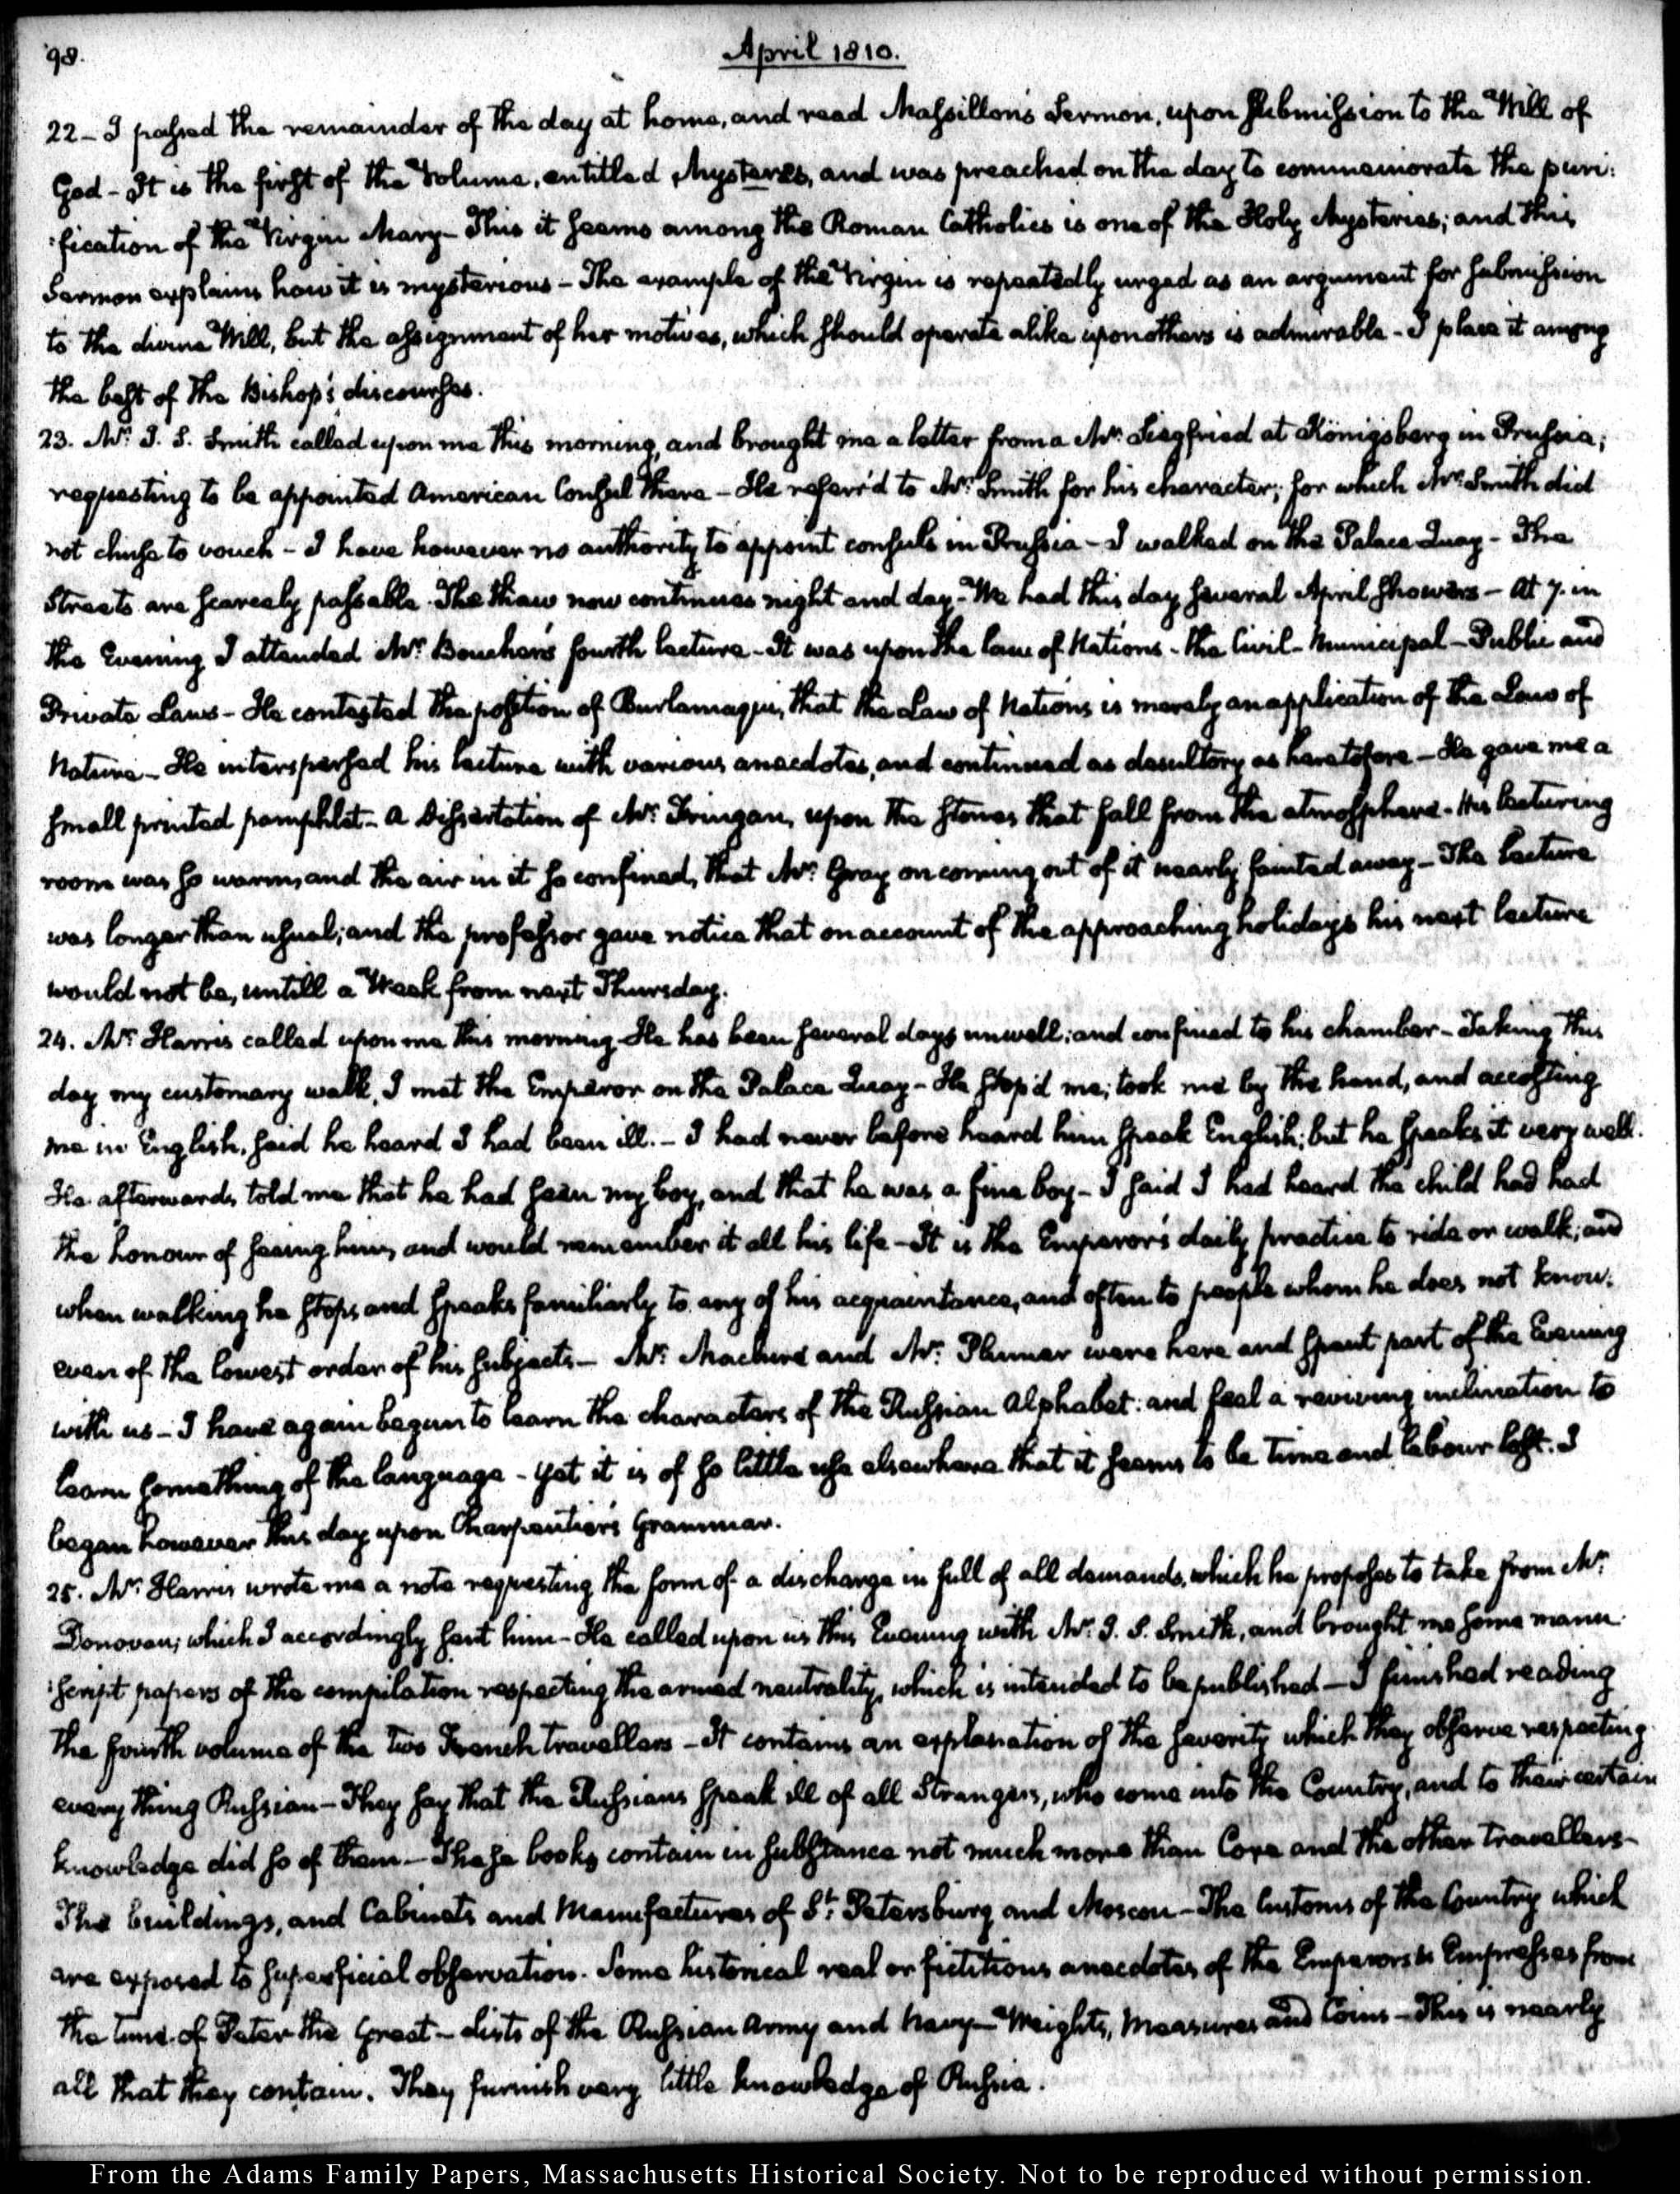 98.
April 1810.
22 - I passed the remainder of the day at home, and read Massillon's Sermon, upon Submission to the Will of
God - It is the first of the Volume, entitled Mysteres, and was preached on the day to commemorate the puri:
:fication of the Virgin Mary - This it seems among the Roman Catholics is one of the Holy Mysteries; and this
Sermon explains how it is mysterious - The example of the Virgin is repeatedly urged as an argument for submission
to the divine Will, but the assignment of her motives, which should operate alike upon others is admirable - I place it among
the best of the Bishop's discourses.
23. Mr. J. S. Smith called upon me this morning, and brought me a letter from a Mr. Siegfried at Königsberg in Prussia,
requesting to be appointed American Consul there - He referr'd to Mr. Smith for his character; for which Mr. Smith did
not chuse to vouch - I have however no authority to appoint consuls in Prussia - I walked on the Palace Quay - The
Streets are scarcely passable. The thaw now continues night and day - We had this day several April showers - At 7. in
the Evening I attended Mr. Beucher's fourth lecture - It was upon the law of Nations - the Civil - Municipal - Public and
Private Laws - He contested the position of Burlamaqui, that the Law of Nations is merely an application of the Law of
Nature - He interspersed his lecture with various anecdotes, and continued as desultory as heretofore - He gave me a
small printed pamphlet - a Dissertation of Mr. upon the stones that fall from the atmosphere. His lecturing
room was so warm, and the air in it so confined, that Mr. Gray on coming out of it nearly fainted away - The lecture
was longer than usual; and the professor gave notice that on account of the approaching holidays his next lecture
would not be, untill a Week from next Thursday.
24. Mr. Harris called upon me this morning. He has been several days unwell; and confined to his chamber - Taking this
day my customary walk, I met the Emperor on the Palace Quay - He stop'd me; took me by the hand, and accosting
me in English, said he heard I had been ill. - I had never before heard him speak English; but he speaks it very well.
He afterwards told me that he had seen my boy, and that he was a fine boy - I said I had heard the child had had
the honour of seeing him, and would remember it all his life - It is the Emperor's daily practice to ride or walk; and
when walking he stops and speaks familiarly to any of his acquaintance, and often to people whom he does not know:
even of the lowest order of his subjects - Mr. and Mr. Plummer were here and spent part of the Evening
with us - I have again begun to learn the characters of the Russian Alphabet: and feel a reviving inclination to
learn something of the language - Yet it is of so little use elsewhere that it seems to be time and labour lost. I
began however this day upon Charpentier's Grammar.
25. Mr. Harris wrote me a note requesting the form of a discharge in full of all demands, which he proposes to take from Mr.
Donovan; which I accordingly sent him - He called upon us this Evening with Mr. J. S. Smith, and brought me some manu
:script papers of the compilation respecting the armed neutrality, which is intended to be published - I finished reading
the fourth volume of the two French travellers - It contains an explanation of the severity which they observe respecting
every thing Russian - They say that the Russians speak ill of all Strangers, who come into the Country, and to their certain
knowledge did so of them - These books contain in substance not much more than Coxe and the other travellers -
The buildings, and Cabinets and Manufactures of St. Petersburg and Moscow - The Customs of the Country which
are exposed to superficial observation. Some historical real or fictitious anecdotes of the Emperors & Empresses from
the time of Peter the Great - Lists of the Russian Army and Navy - Weights, Measures and Coins - This is nearly
all that they contain. They furnish very little knowledge of Russia.
From the Adams Family Papers, Massachusetts Historical Society. Not to be reproduced without permission.